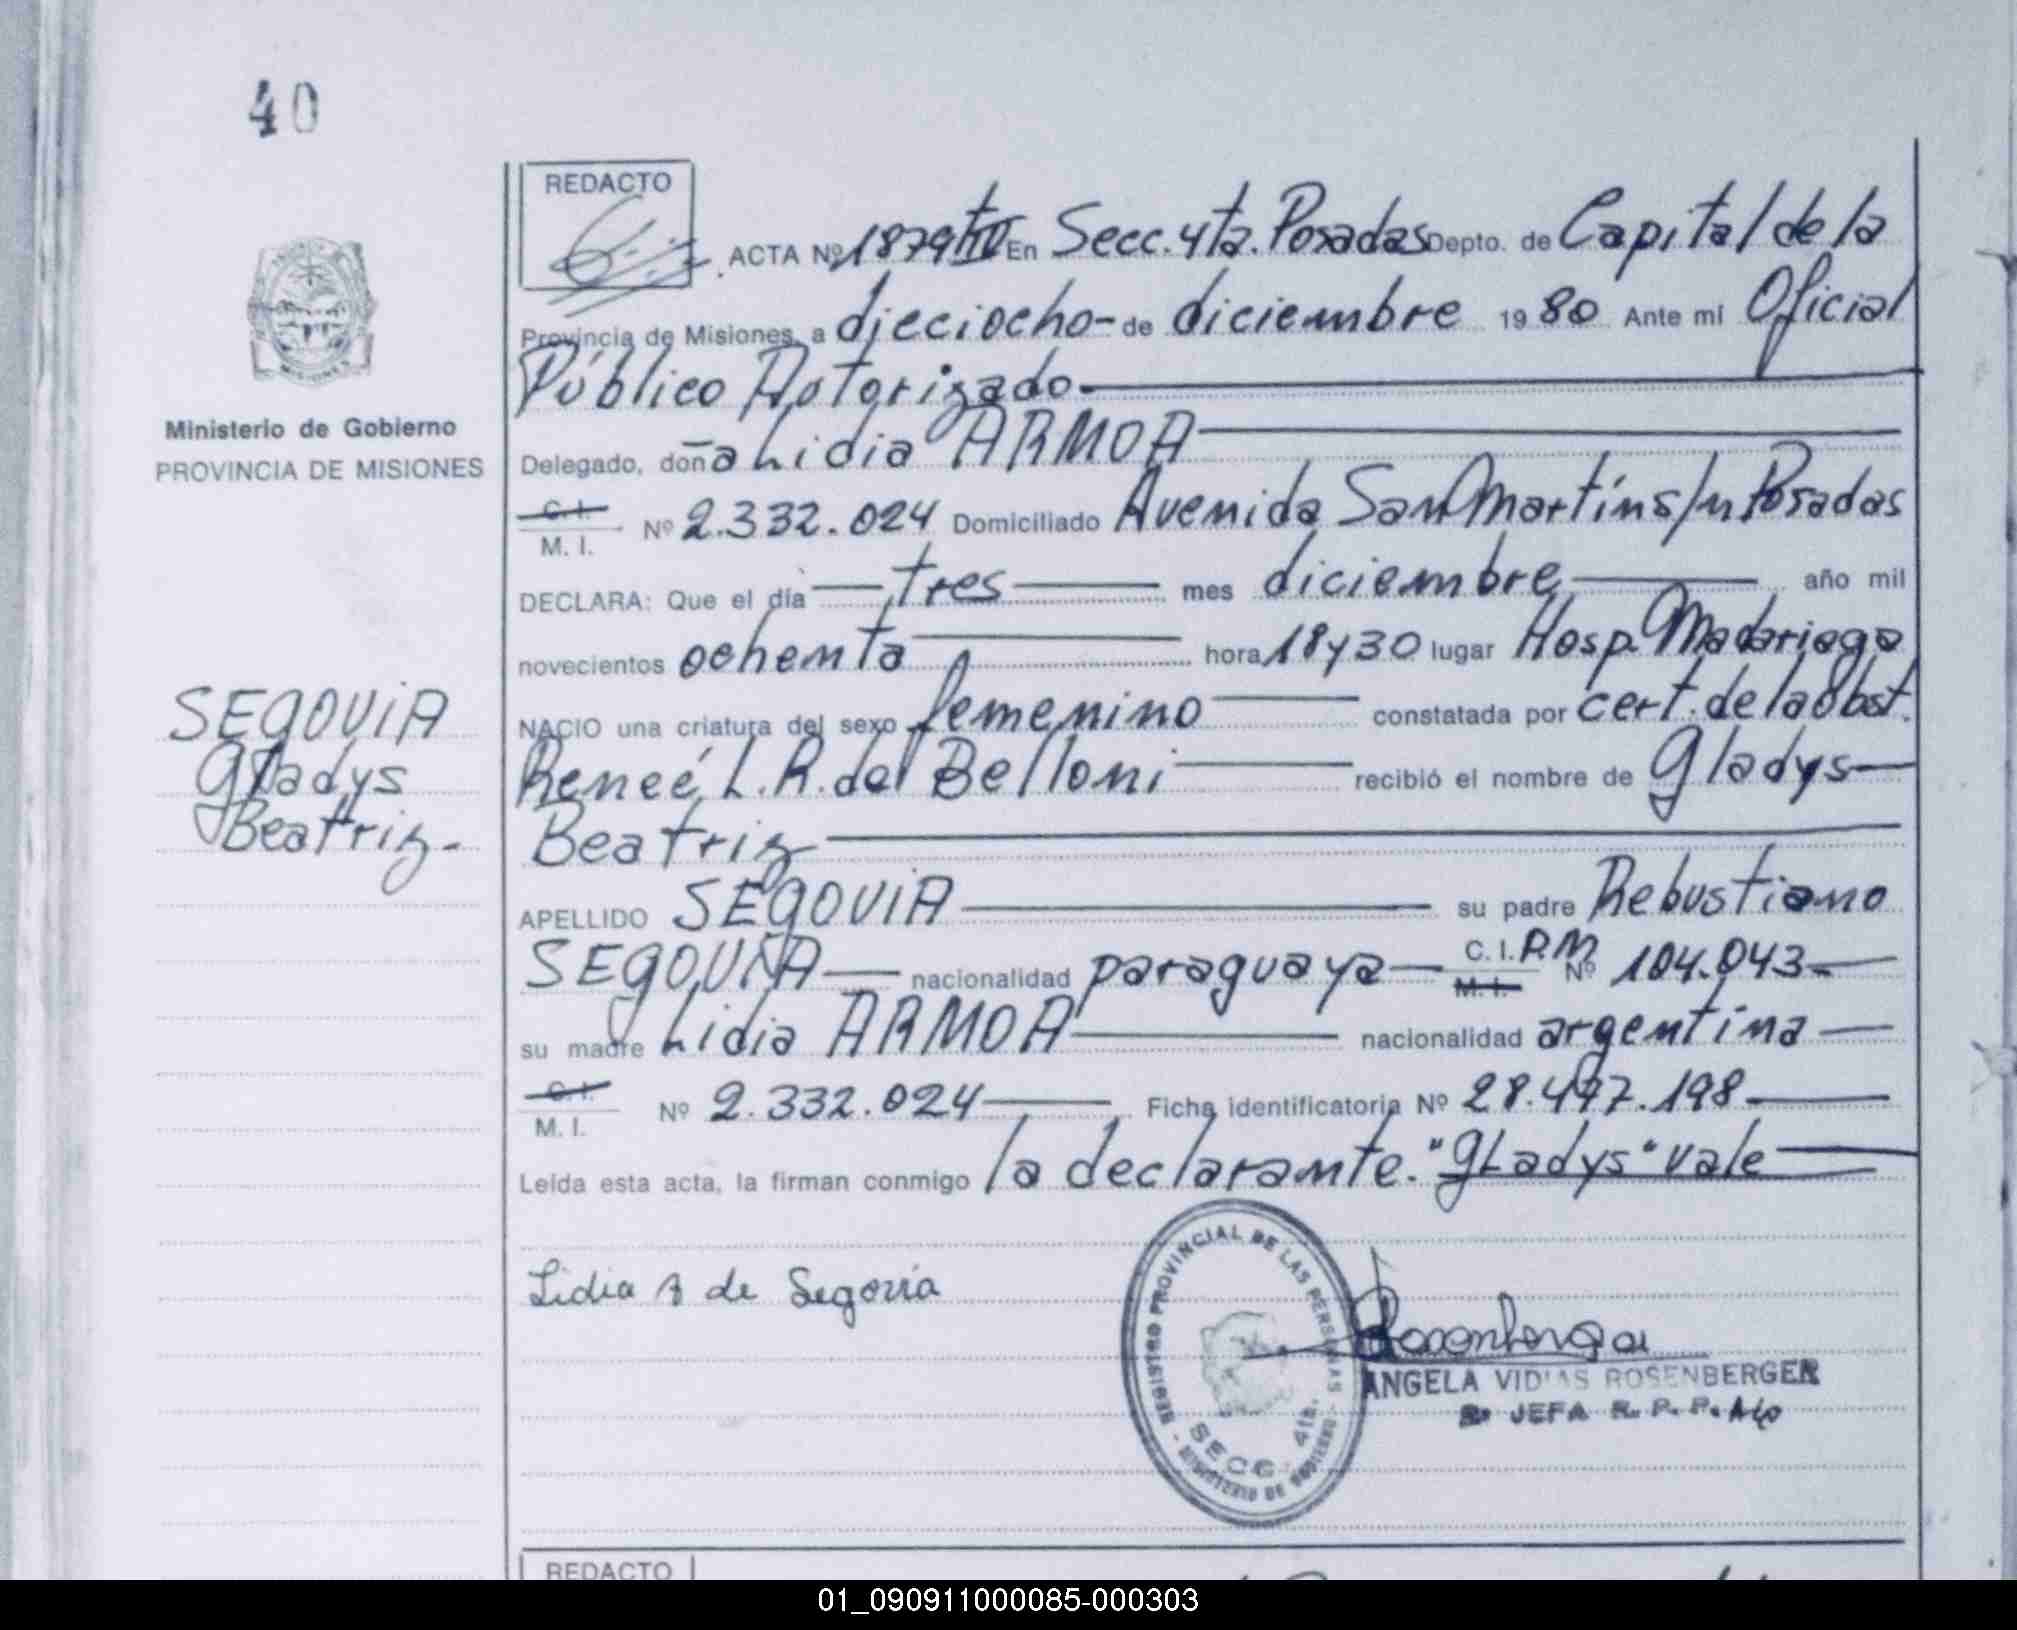 40
REDACTO
ACTA Nº 1879 tIV En Secc. 4ta. Posadas Depto. de Capital de la
Provincia de Misiones, a dieciocho- de diciembre 19 80 Ante mí Oficial
Público Autorizado.
Delegado, doña Lidia ARMOA
Ministerio de Gobierno
PROVINCIA DE MISIONES
C. I.
M. I. Nº 2.332.024 Domiciliado Avenida San Martín s/n Posadas
DECLARA: Que el día tres mes diciembre año mil
novecientos ochenta hora 18 y 30 lugar Hosp. Madariaga
NACIO una criatura del sexo femenino constatada por cert. de la Obst.
Reneé L. R. del Belloni recibió el nombre de Gladys
Beatriz
SEGOVIA
Gladys
Beatriz.-
APELLIDO SEGOVIA su padre Rebustiano
SEGOVIA nacionalidad paraguaya C. I. P.M Nº 104.043.
M. I.
su madre Lidia ARMOA nacionalidad argentina
C. I.
M. I. Nº 2.332.024 Ficha identificatoria Nº 28.477.198
Leída esta acta, la firman conmigo la declarante. "GLadys" vale
Lidia A de Segovia
REGISTRO PROVINCIAL DE LAS PERSONAS - MINISTERIO DE GOBIERNO -
SECC. 4ta.
Rosenberger
ANGELA VIDIAS ROSENBERGER
JEFA R. P. P.
REDACTO
01_090911000085-000303